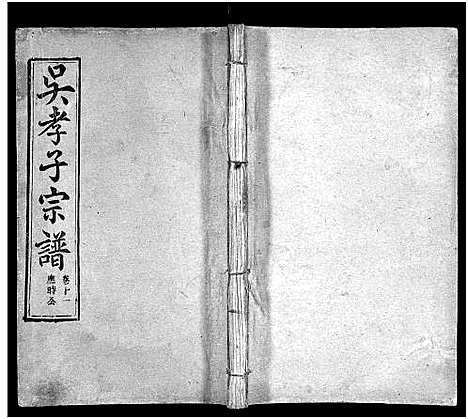 吳孝子宗譜
卷十一
應時公